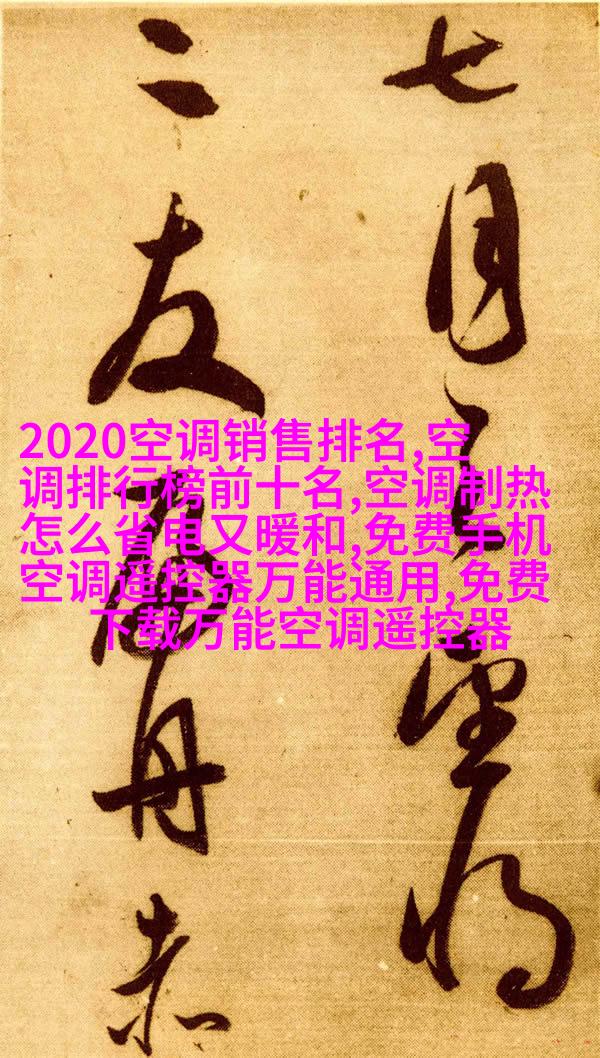 七月望将
二友舟赤
2020空调销售排名,空
调排行榜前十名,空调制热
怎么省电又暖和,免费手机
空调遥控器万能通用,免费
下载万能空调遥控器